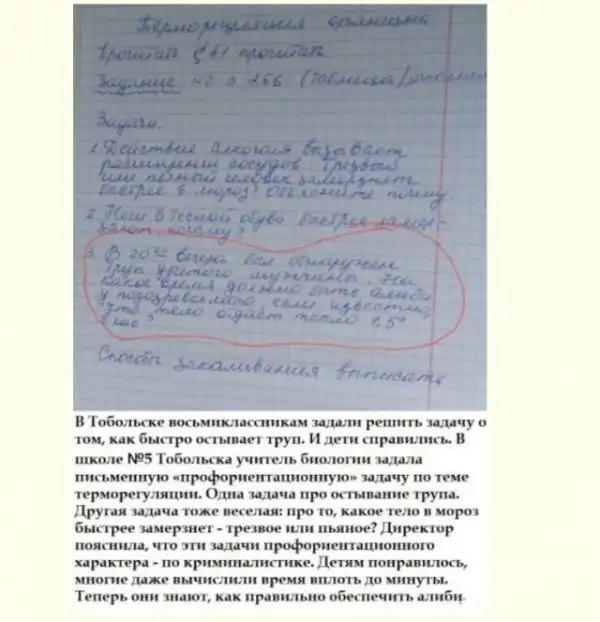 Терморегуляция организма
Прочитать § 41 прочитать
Задание №2 с 266 (Таблица)
Задачи.
1. Действие алкоголя вызывает
расширение сосудов. Трезвый
или пьяный человек замерзнет
быстрее в мороз? Объясните почему.
2. Ноги в тесной обуви быстрее замер-
зают, почему?
3. В 20⁰⁰ вечера был обнаружен
труп убитого мужчины. На
какое время должно быть алиби
у подозреваемого, если известно,
что тело отдаёт тепло 1,5°
в час?
Способы закаливания выписать
В Тобольске восьмиклассникам задали решить задачу о
том, как быстро остывает труп. И дети справились. В
школе №5 Тобольска учитель биологии задала
письменную «профориентационную» задачу по теме
терморегуляции. Одна задача про остывание трупа.
Другая задача тоже веселая: про то, какое тело в мороз
быстрее замерзнет - трезвое или пьяное? Директор
пояснила, что эти задачи профориентационного
характера - по криминалистике. Детям понравилось,
многие даже вычислили время вплоть до минуты.
Теперь они знают, как правильно обеспечить алиби.